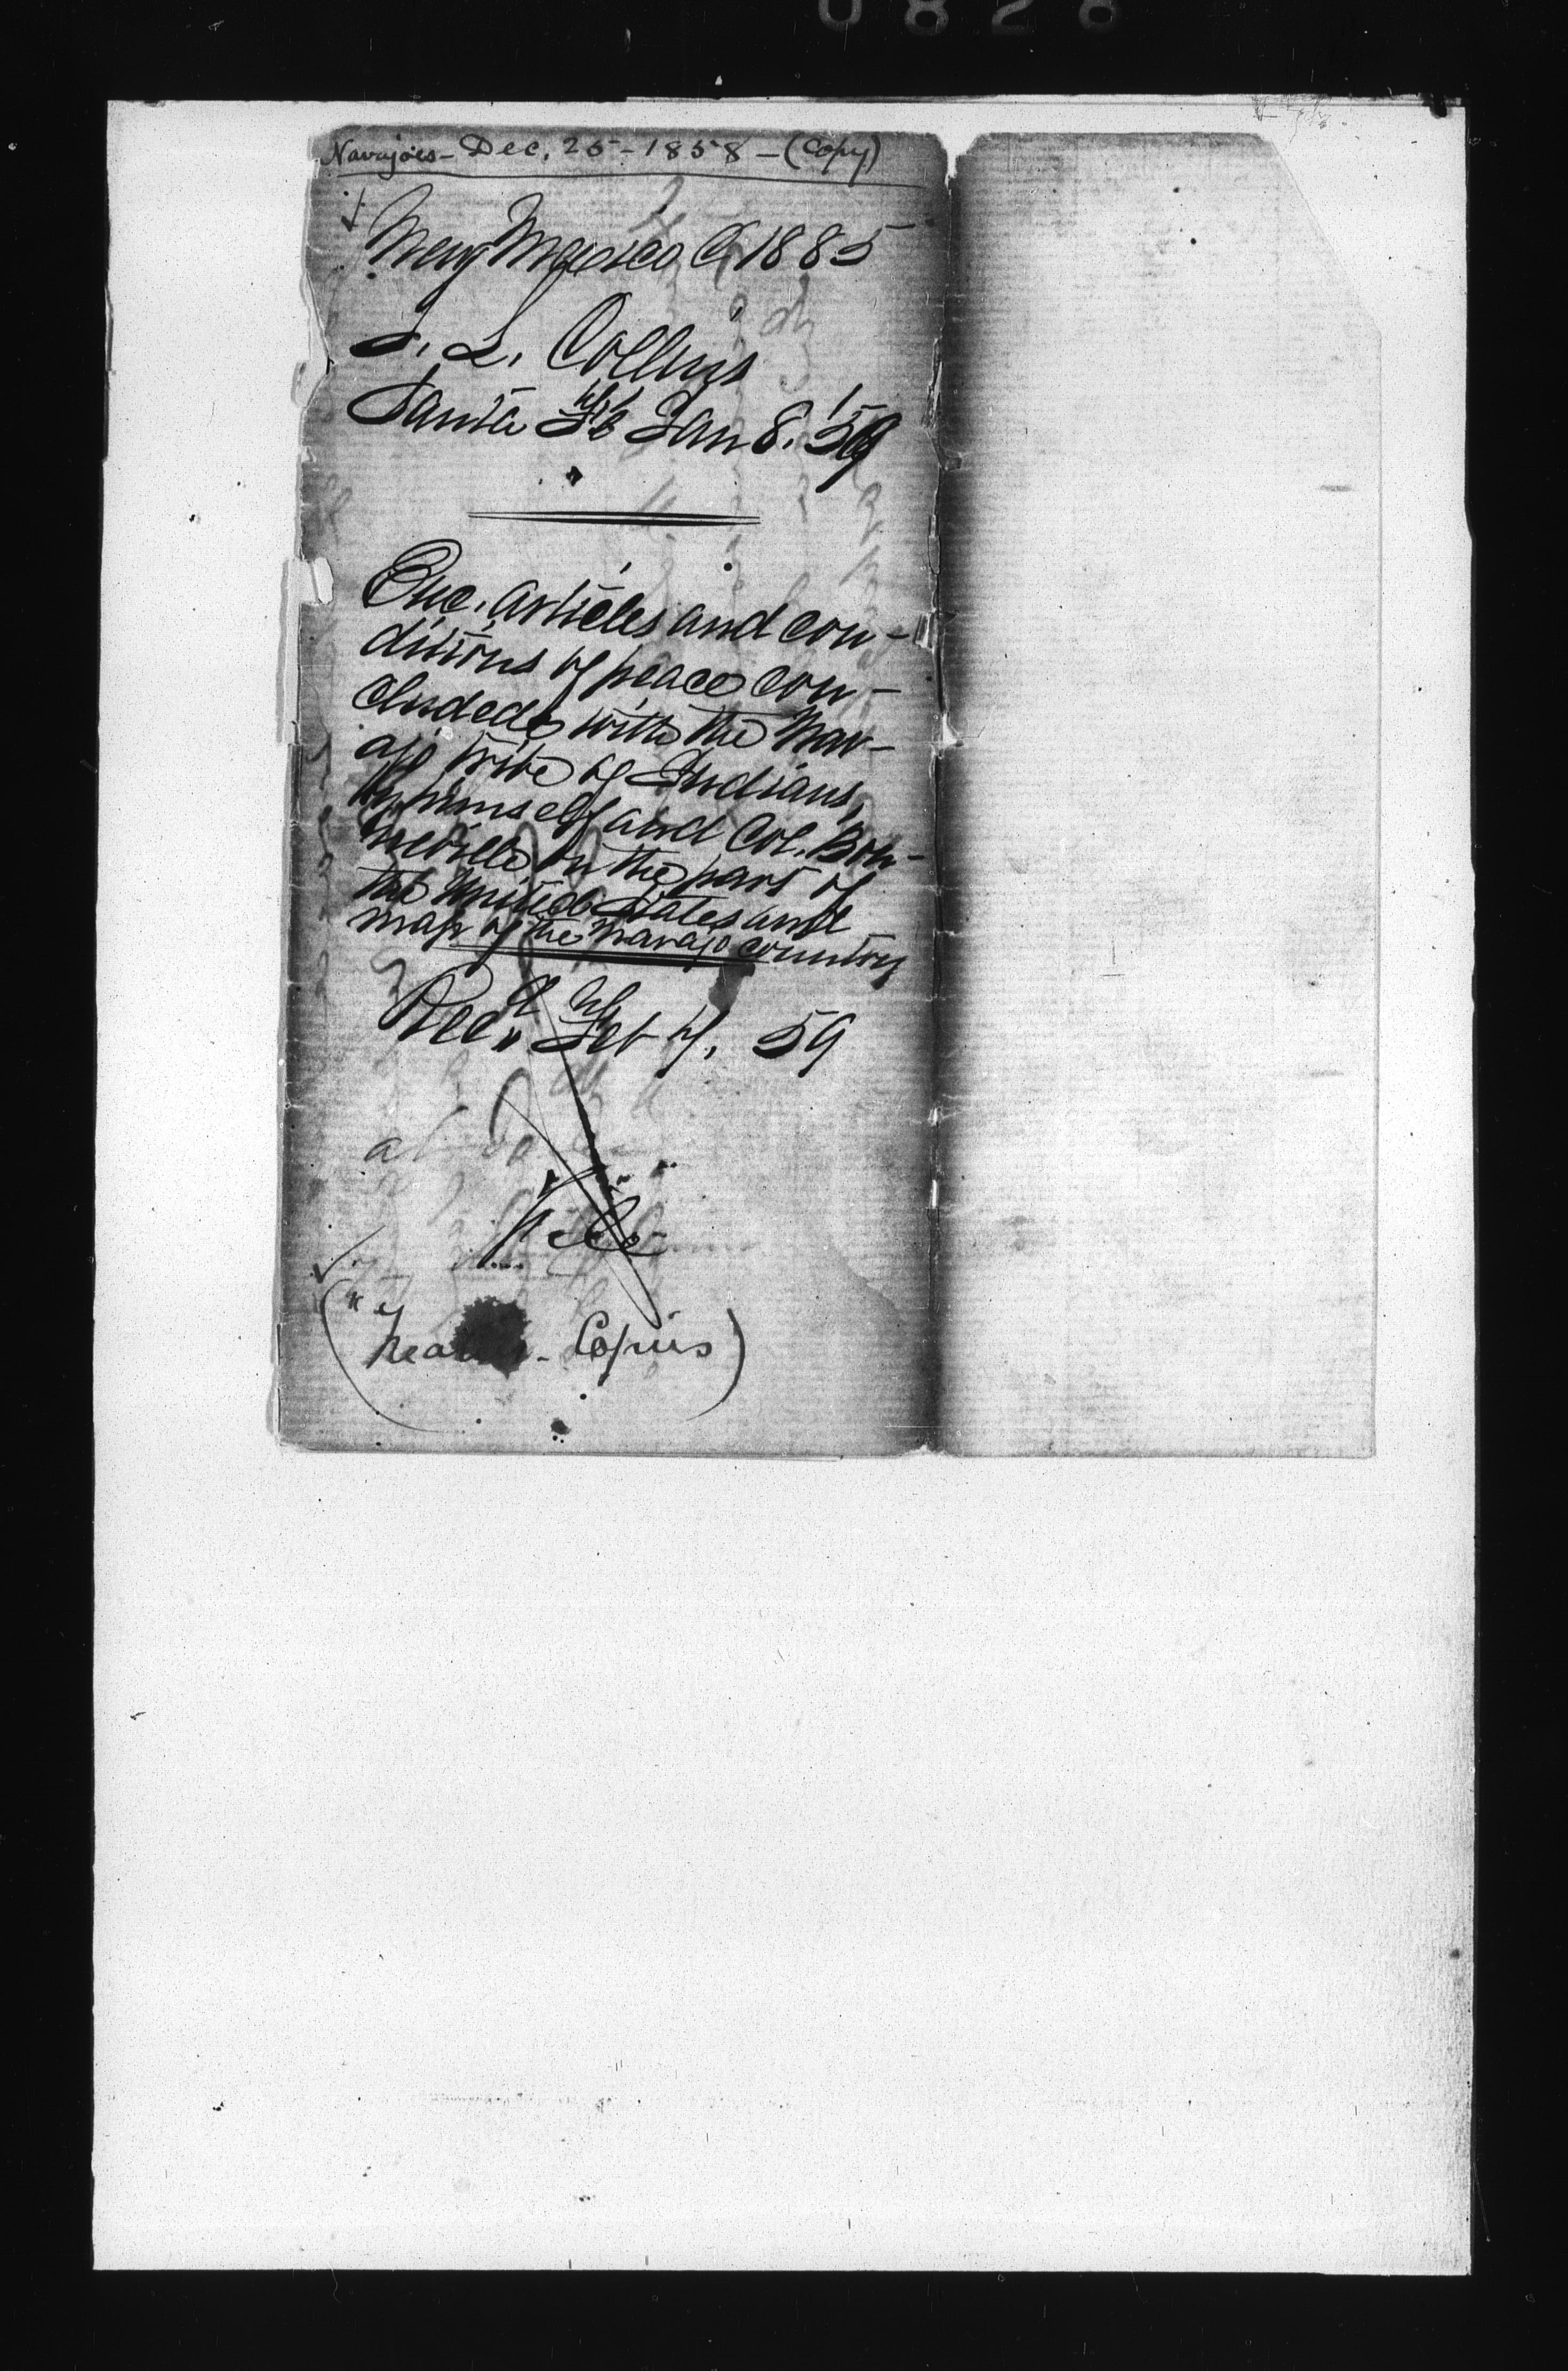 0828
Navajoes - Dec. 25 - 1858 - (Copy)
New Mexico C 1885
J. L. Collins
Santa Fé Jan 8. '59
Enc. articles and con-
ditions of peace con-
cluded with the Nav-
ajo tribe of Indians,
by himself and Col. Bon-
neville on the part of
the United States and
map of the Navajo country
Recd Feb 7, 59
File
Copies)